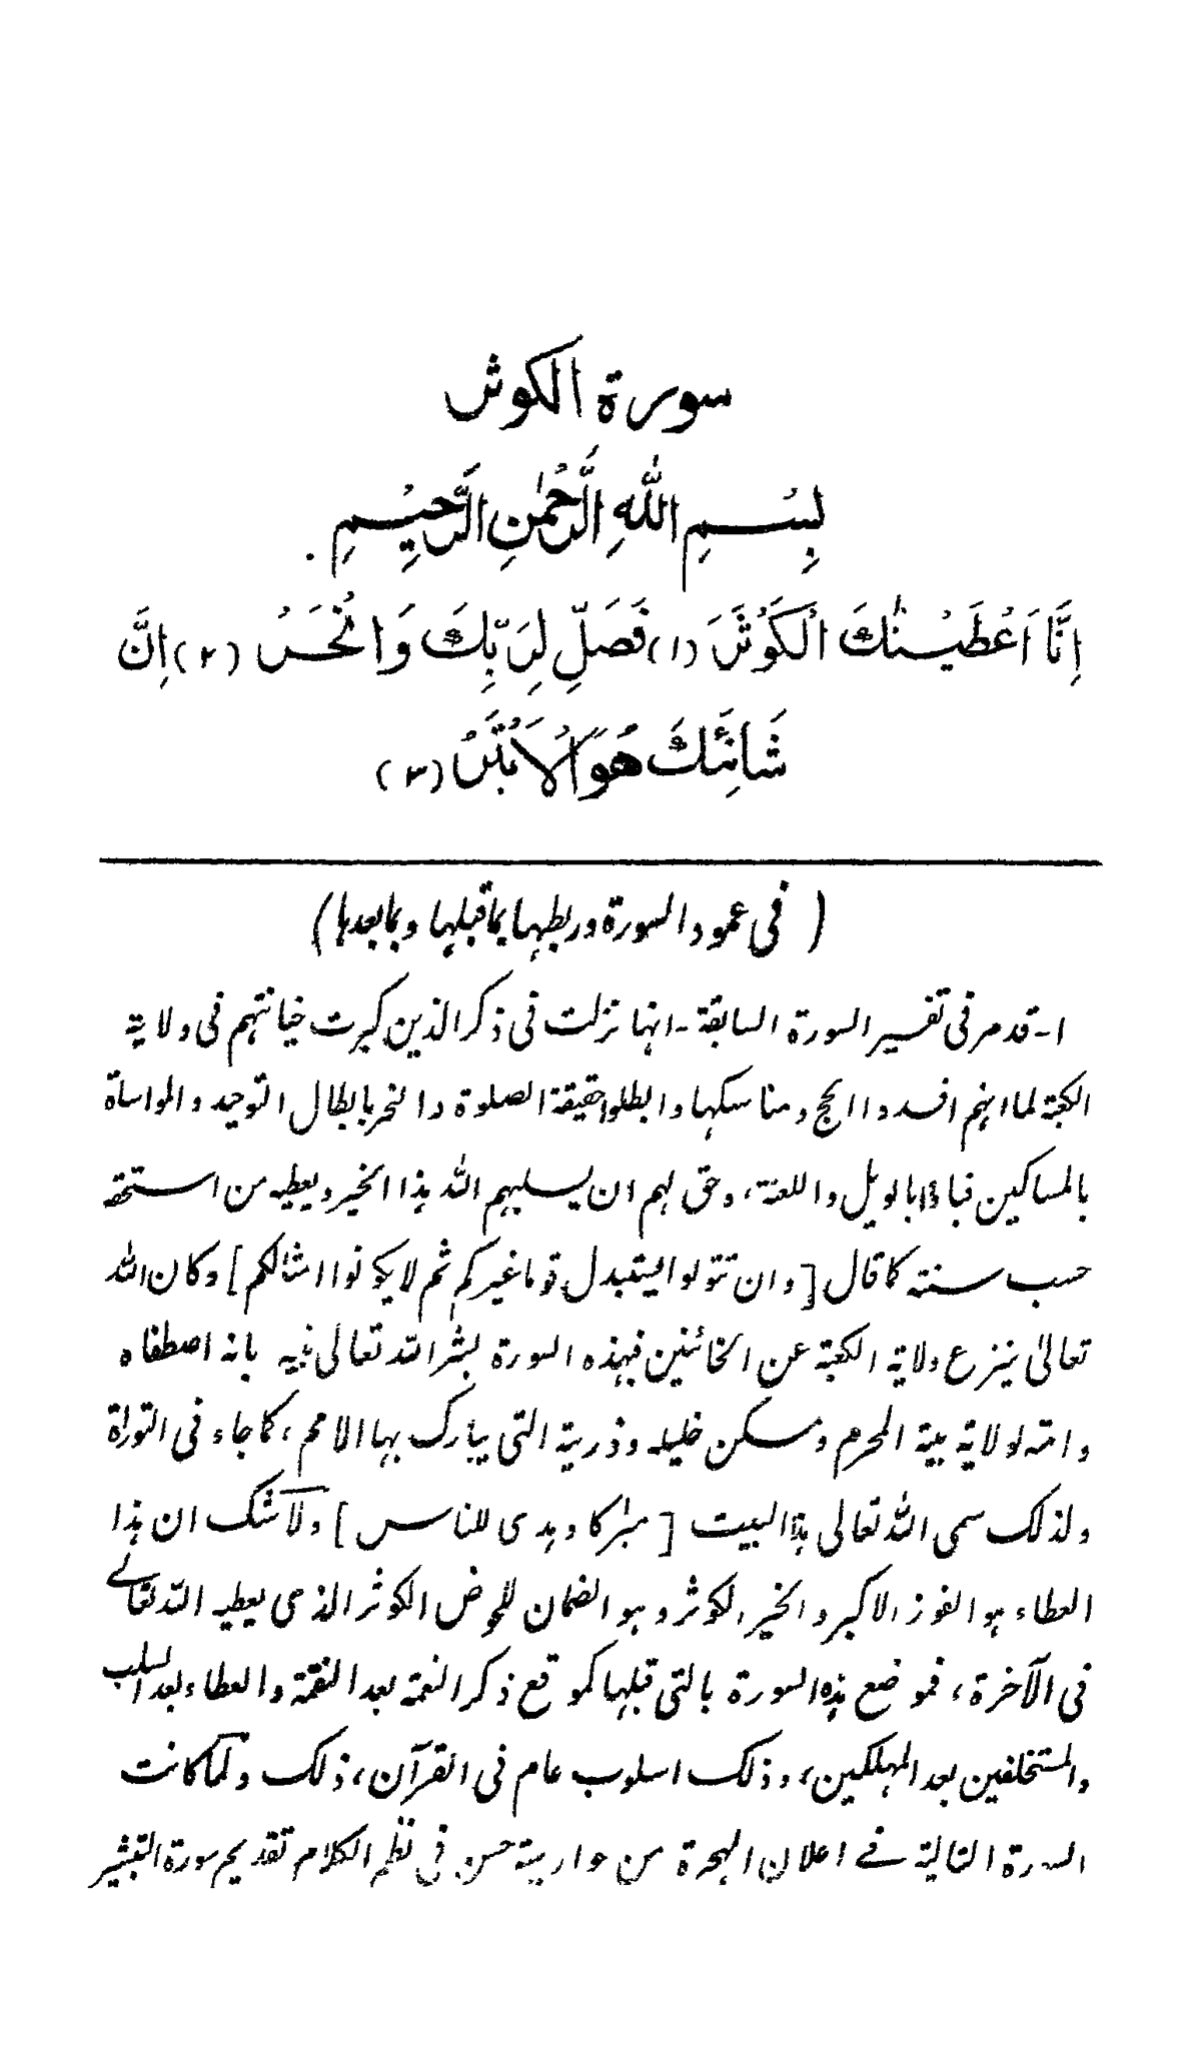 سورة الكوثر
بِسْمِ اللّٰهِ الرَّحْمٰنِ الرَّحِيْمِ.
اِنَّا اَعْطَيْنٰكَ الْكَوْثَرَ (۱) فَصَلِّ لِرَبِّكَ وَانْحَرْ (۲) اِنَّ
شَانِئَكَ هُوَ الْاَبْتَرُ (۳)
( فی عمود السورة وربطها بما قبلها وبما بعدها)
۱- قد مر فی تفسیر السورة السابقة - انها نزلت فی ذکر الذین کبرت خیانتهم فی ولایة
الکعبة لما انهم افسدوا الحج ومناسکها وابطلوا حقیقة الصلوة والنحر بابطال التوحید والمواساة
بالمساکین فباؤا بالویل واللعنة، وحق لهم ان یسلبهم الله هذا الخیر ویعطیه من استحقه
حسب سنته کما قال [وان تتولوا یستبدل قوما غیرکم ثم لا یکونوا امثالکم] وکان الله
تعالیٰ ینزع ولایة الکعبة عن الخائنین فبهذه السورة بشر الله تعالی نبیه بانه اصطفاه
وامته لولایة بیته المحرم ومسکن خلیله وذریة التی یبارک بها الامم، کما جاء فی التوراة
ولذلک سمی الله تعالی هذا البیت [مبٰرکا وهدی للناس] ولا شک ان هذا
العطاء هو الفوز الاکبر والخیر الکوثر وهو الضمان للحوض الکوثر الذی یعطیه الله تعالے
فی الآخرة، فموضع هذه السورة بالتی قبلها کموقع ذکر النعمة بعد النقمة والعطاء بعد السلب
والمستخلفین بعد المهلکین، وذلک اسلوب عام فی القرآن، ذلک ولما کانت
السورة التالیة فے اعلان الهجرة من حسن فی نظم الکلام تقدیم سورة التبشیر